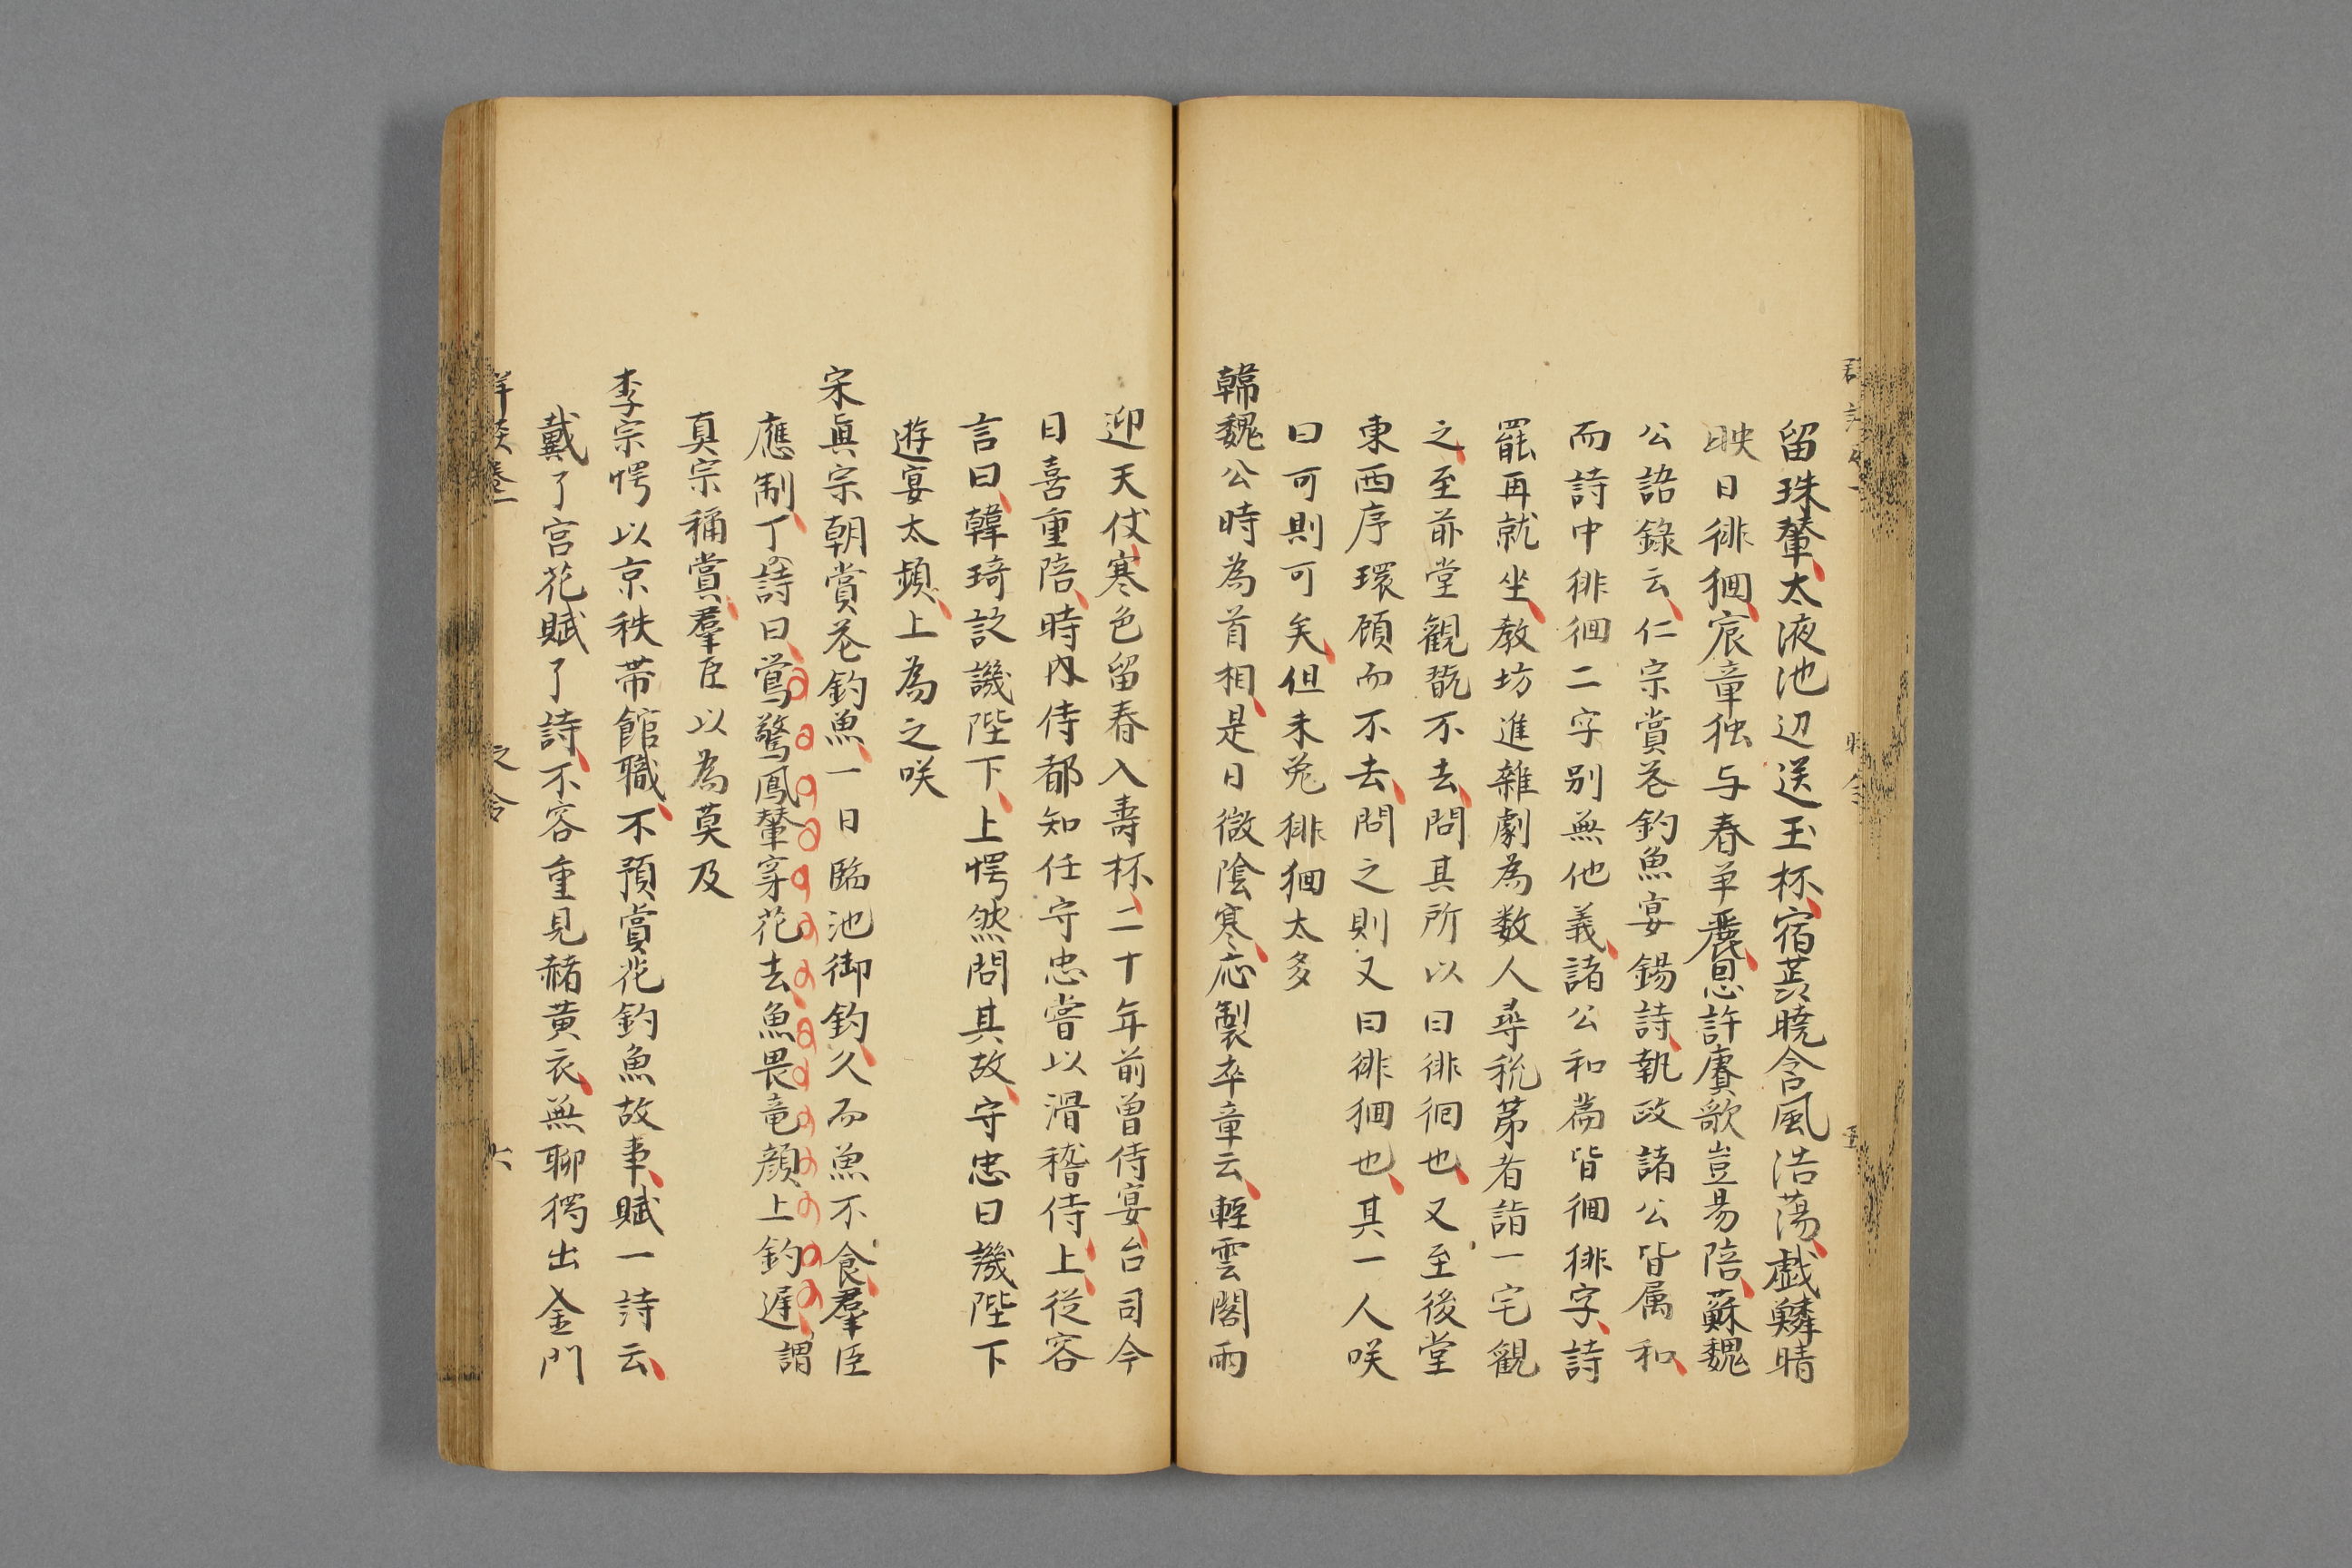 留珠輦太液池辺送玉杯宿蘂暁含風浩蕩戯鱗晴
映日徘徊宸章独与春争麗恩許賡歌豈易陪蘇魏
公語錄云仁宗賞花釣魚宴錫詩執政諸公皆属和
而詩中徘徊二字別無他義諸公和篇皆徊徘字詩
罷再就坐教坊進雜劇為数人尋税第者詣一宅觀
之至前堂觀翫不去問其所以曰徘徊也又至後堂
東西序環顧而不去問之則又曰徘徊也其一人咲
曰可則可矣但未免徘徊太多
韓魏公時為首相是日微陰寒応製卒章云輕雲閣雨
迎天仗寒色留春入壽杯二十年前曽侍宴台司今
日喜重陪時内侍都知任守忠嘗以滑稽侍上從容
言曰韓琦詩譏陛下上愕然問其故守忠曰譏陛下
遊宴太頻上為之咲
宋眞宗朝賞花釣魚一日臨池御釣久而魚不食羣臣
應制丁謂詩曰鶯驚鳳輦穿花去魚畏竜顔上釣遅
真宗稱賞羣臣以為莫及
李宗愕以京秩帯館職不預賞花釣魚故事賦一詩云
戴了宫花賦了詩不容重見赭黃衣無聊獨出金門